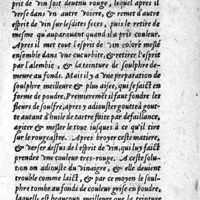 prit de vin soit deuenu rouge, laquel apres il
verse dans vn autre voirre, & remet d'autre
esprit de vin sur lesdites feces, puis le retire de
mesme qu'auparauant quand il a pris couleur.
Apres il met tout l'esprit de vin coloré meslé
ensemble dans vne cucurbite, & retirer l'esprit
par l'alembic, & la teinture de soulphre de-
meure au fonds. Mais il y a vne preparation de
soulphre meilleure & plus aisee, qui se faict en
forme de poudre. Premierement il faut fondre les
fleurs de soulfre, apres y adiouster goutte à gout-
te autant d'huile de tartre faite par defaillance,
agiter & mesler le tout iusques à ce qu'il tire
sur le rougeastre. Apres broyer ceste matiere,
& verser dessus de l'esprit de vin, qui luy faict
prendre vne couleur tres-rouge. A ceste solu-
tion on adiouste du vinaigre, & elle deuient
trouble comme laict, & par ce moyen le soul-
phre tombe au fonds de couleur grise en poudre,
laquelle est beaucoup meilleure que la teinture